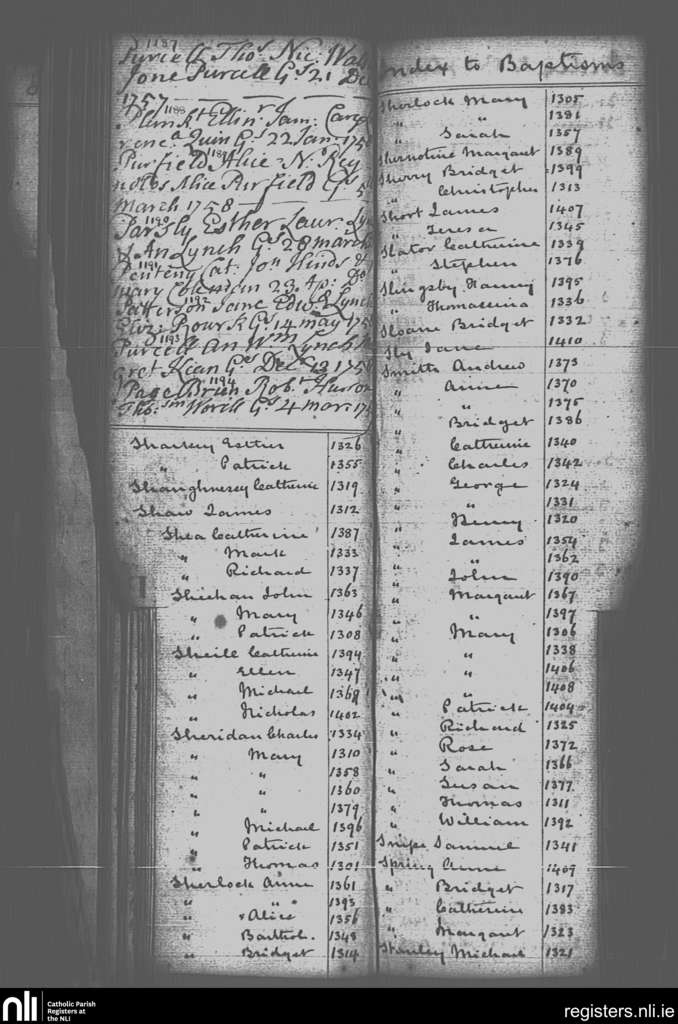 1187
Purcell Thos. Nic: Wal
Jone Purcell Gs 21 De
1757
1188
Plunkt Ellin. Jam: Carey
renca Quin Gs 22 Jan: 175
1189
Purfield Alice N. Rey
nolds Alice Purfield Gs 5
March 1758
1190
Parsly Esther Laur. Ly
& An Lynch Gs 28 march
1191
Penteny Cat: Jon Hinds &
mary Coleman 23 Ap: Do
1192
Patterson Jane Edwd Lynch
Eliz: Rourk Gs 14 may 175
1193
Purcell An Wm Lynch M
gret Kean Gs Decr 13 1758
1194
Page Brien Robt Huson
Thos: Worell Gs 4 mar: 17
Sharkey Esther 1326
" Patrick 1355
Shaughnessy Catherine 1319
Shaw James 1312
Shea Catherine 1387
" Mark 1333
" Richard 1337
Sheehan John 1363
" Mary 1346
" Patrick 1308
Sheile Catherine 1394
" Ellen 1347
" Michael 1368
" Nicholas 1402
Sheridan Charles 1334
" Mary 1310
" " 1358
" " 1360
" " 1379
" Michael 1396
" Patrick 1351
" Thomas 1301
Sherlock Anne 1361
" " 1393
" Alice 1356
" Barthol. 1348
" Bridget 1314
Index to Baptisms
Sherlock Mary 1305
" " 1381
" Sarah 1357
Shernotine Margaret 1389
Sherry Bridget 1399
" Christopher 1313
Short James 1407
" Teresa 1345
Slator Catherine 1339
" Stephen 1376
Slingsby Nanny 1395
" Thomasina 1336
Sloane Bridget 1332
Sly Jane 1410
Smith Andrew 1373
" Anne 1370
" " 1375
" Bridget 1386
" Catherine 1340
" Charles 1342
" George 1324
" " 1331
" Henry 1320
" James 1354
" " 1362
" John 1390
" Margaret 1367
" " 1397
" Mary 1306
" " 1338
" " 1406
" " 1408
" Patrick 1404
" Richard 1325
" Rose 1372
" Sarah 1366
" Susan 1377
" Thomas 1311
" William 1392
Snipe Samuel 1341
Spring Anne 1409
" Bridget 1317
" Catherine 1383
" Margaret 1323
Stanley Michael 1321
nli
Catholic Parish
Registers at
the NLI
registers.nli.ie